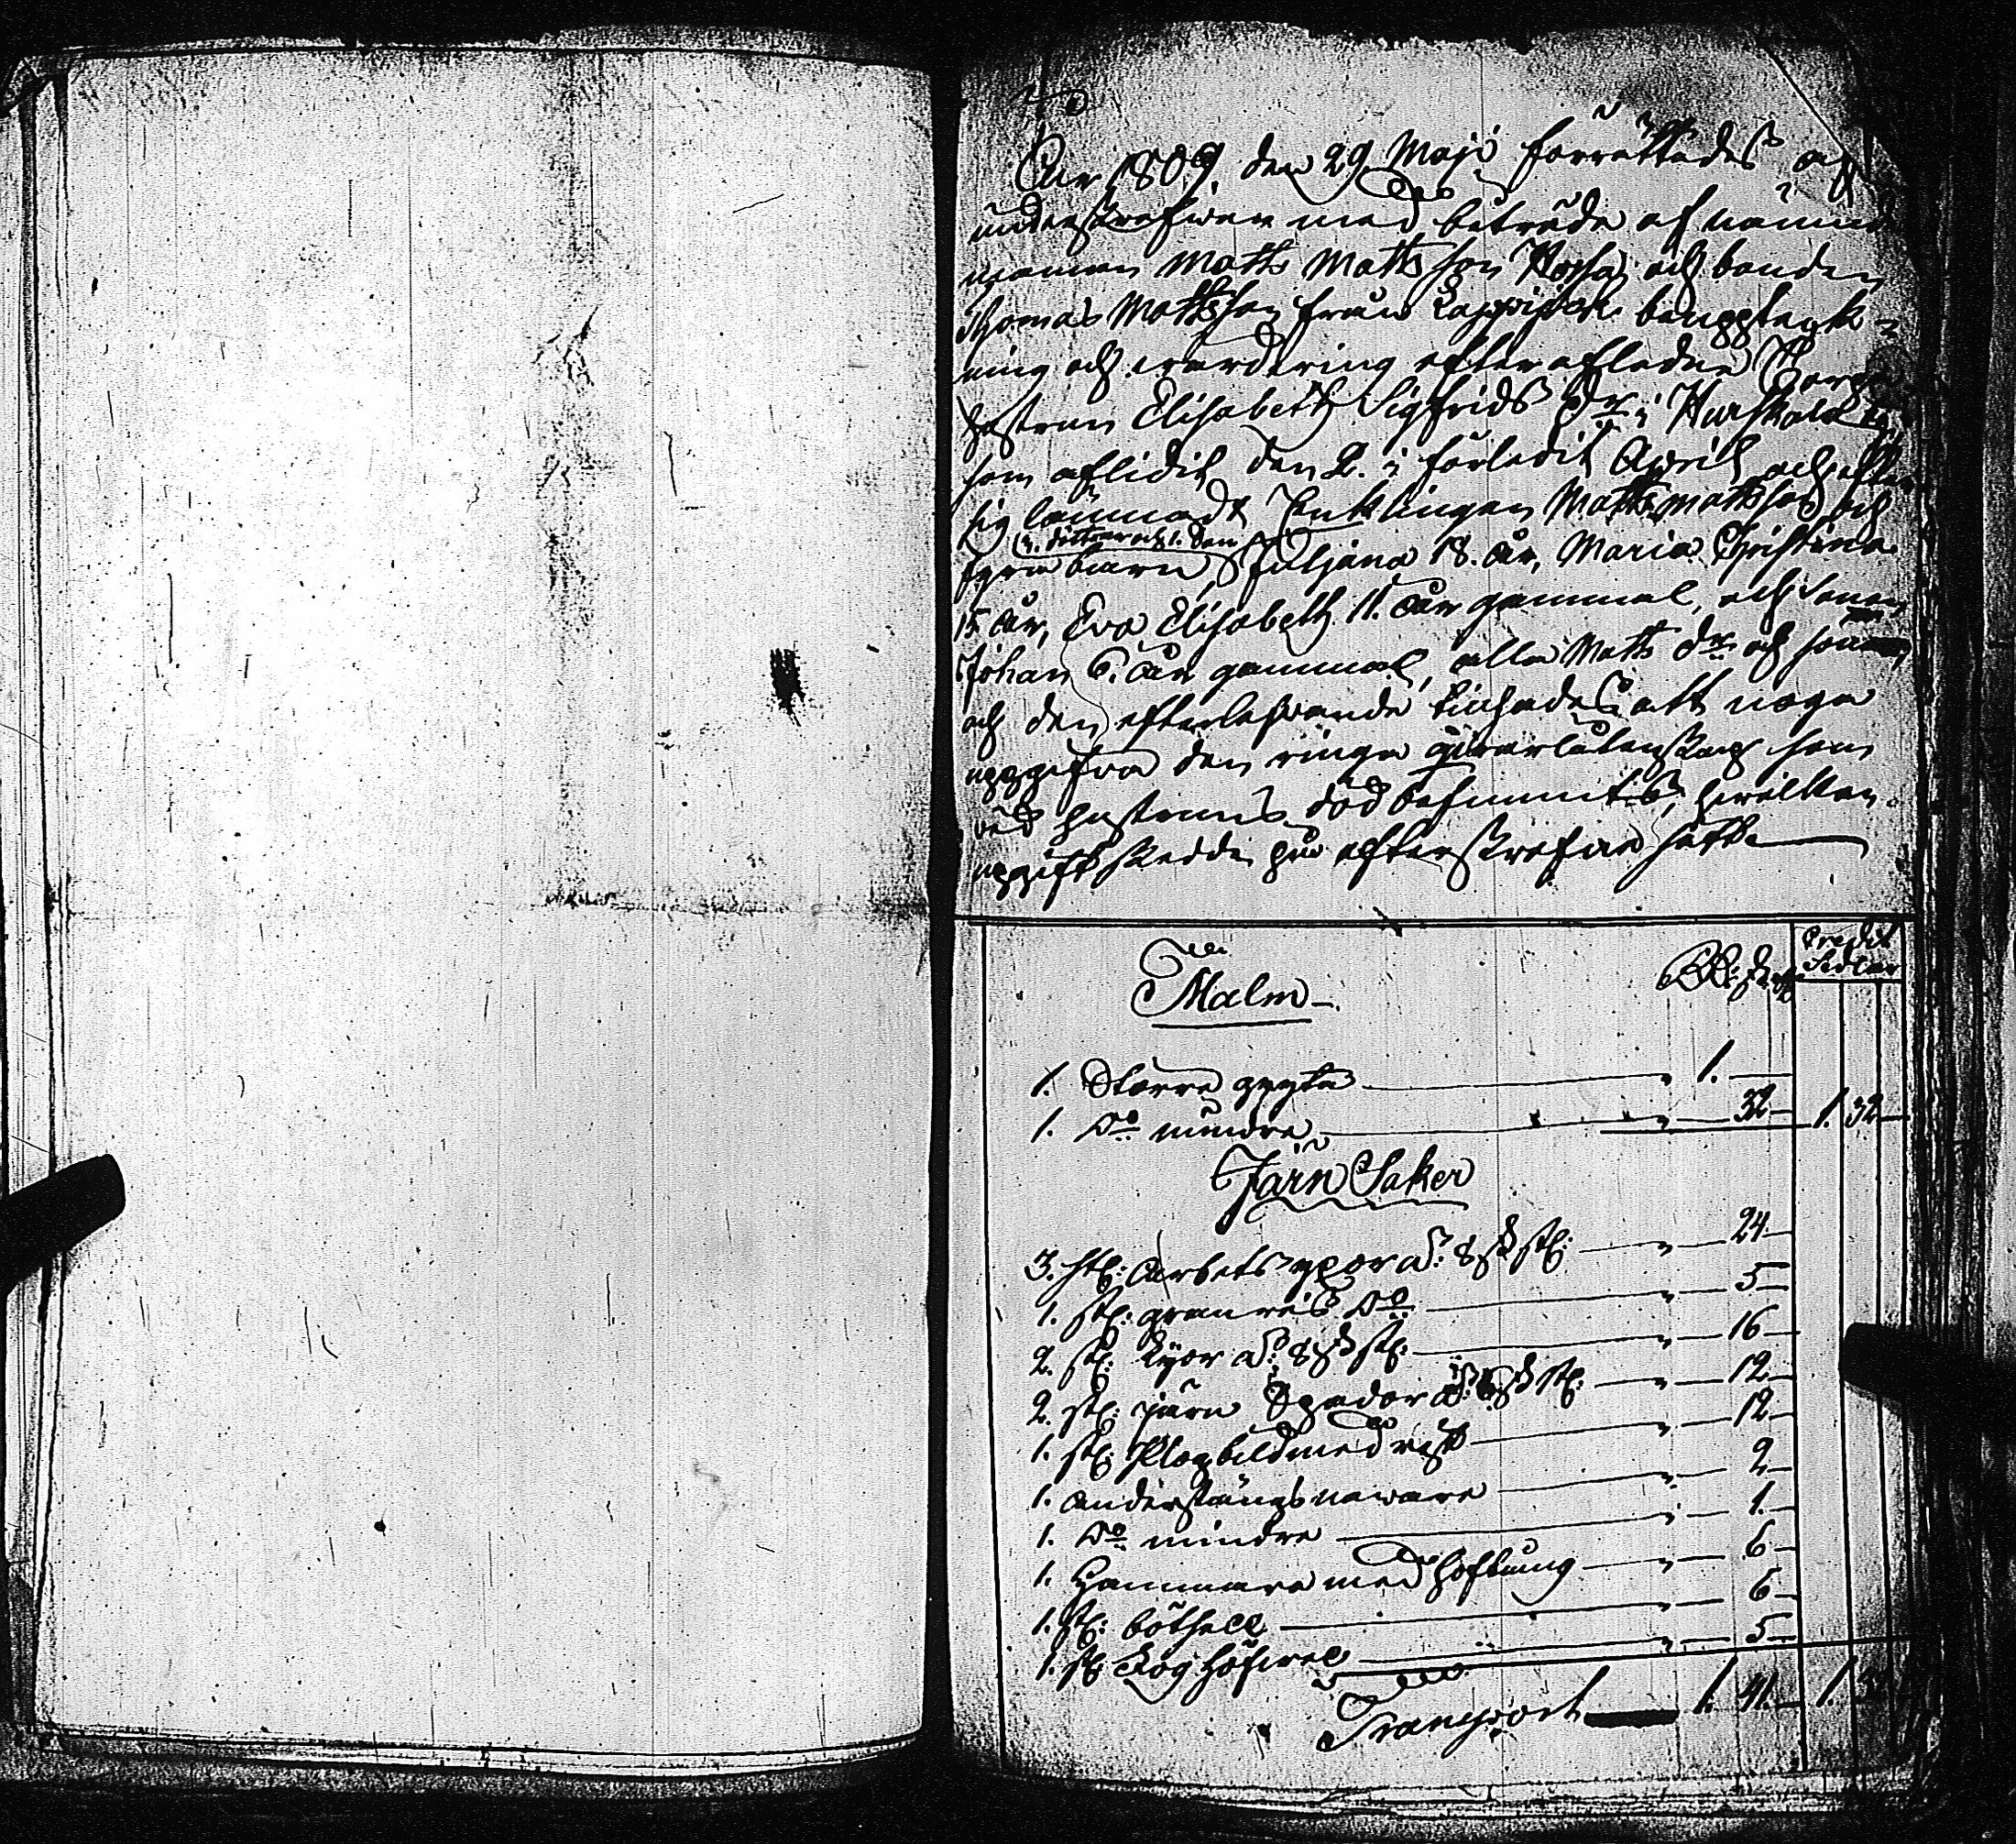 År 1809 den 29 Maji förrättades af
underskrefwen med biträde af nämnd
mannen Matts Mattsson och bonden
Thomas Mattsson från bouppteck-
ning och wärdering efter afledne
hustrun Elisabeth Sigfrids Dr i
som aflidit den 2. i förledit April och efter
sig lämnadt Enklingen Matts Mattsson och
3. döttrar och 1. Son
fyra barn, Juljana 18. år, Maria Christina
15 år, Eva Elisabeth 11. år gammal, och Sonen
Johan 6. år gammal, alla Matts Dr och son
och den efterlefwande tilsades att noga
uppgifwa den ringa qwarlåtenskap som
wid hustruns död befunnits, hwilken
uppgift skedde på efterskrefne sätt
Credit
Sedlar
Malm
1. Större gryta 1.
1. Do mindre 32 1. 32
Järn Saker
3. st: Arbets yxor a: 8 sk st: 24
1. st: granris Do 5
2. st: Lijor a: 8 sk st: 16
2. st: järn Spador a: 6 sk st: 12
1. st: Plogbill med rist 12
1. anderstångs naware 2
1. Do mindre 1.
1. Hammare med hoftång 6
1. st: 6
1. st: 5
Transport 1. 41. 1.